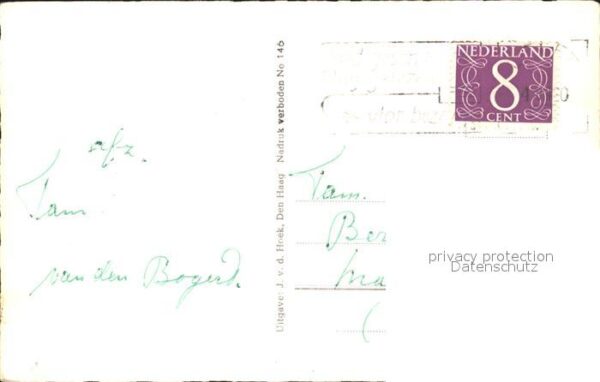 afz.
Fam.
van den Bogerd.
Uitgave: J. v. d. Hoek, Den Haag Nadruk verboden No 146
NEDERLAND
8
CENT
Fam.
Ber
Ma
privacy protection
Datenschutz